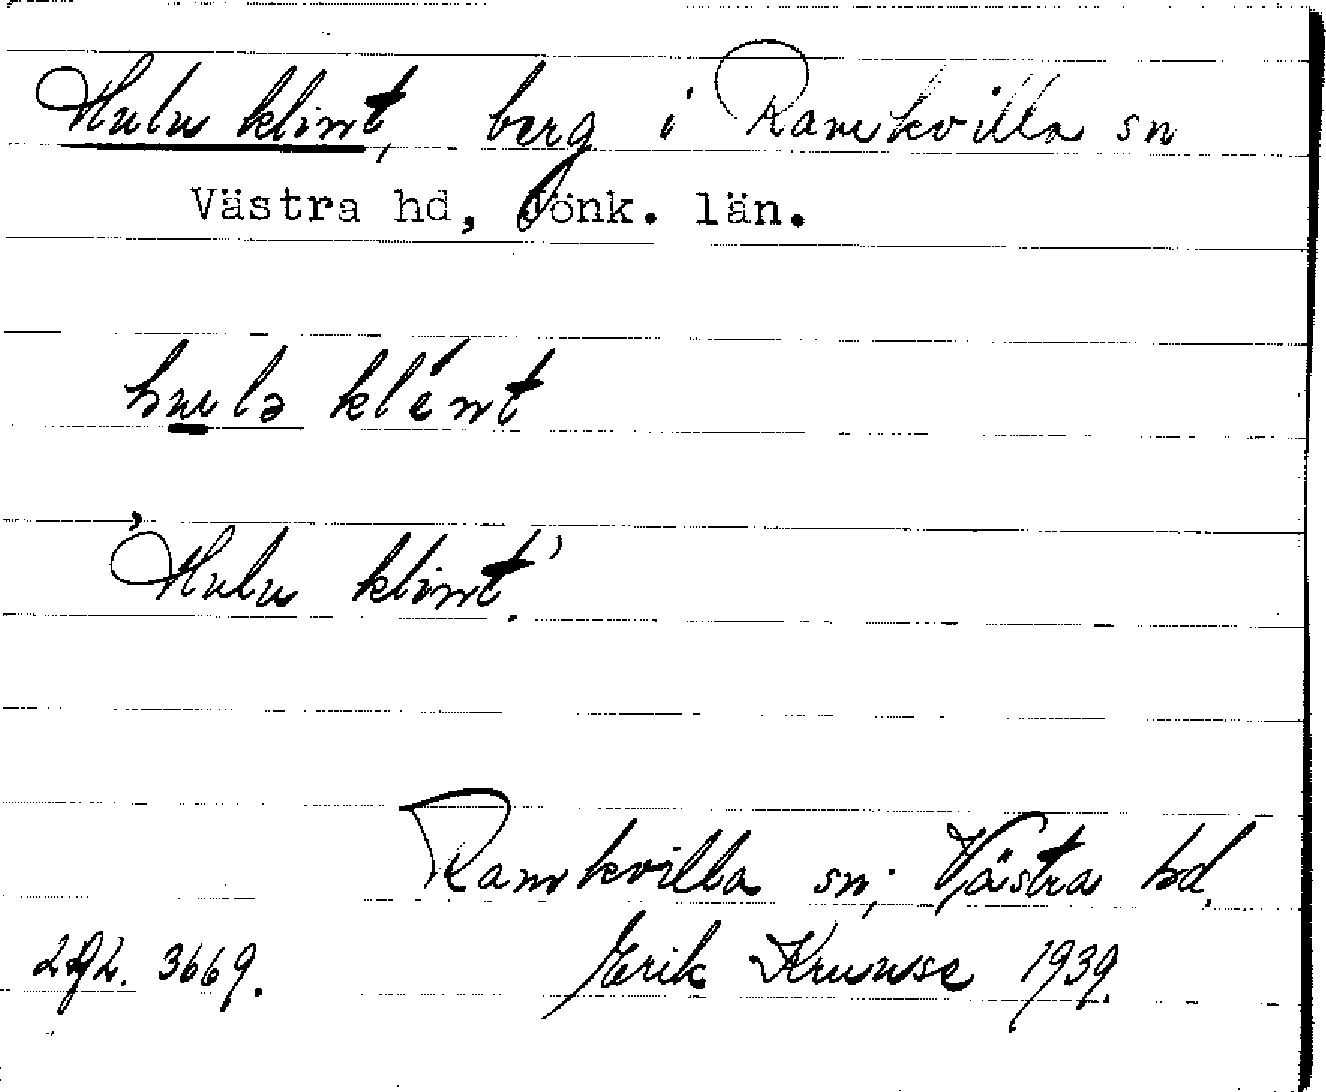 Hulu klint, berg i Ramkvilla sn
Västra hd, Jönk. län.
hulə klént
'Hulu klint'.
Ramkvilla sn; Västra hd.
3669. Erik Kruuse 1939.